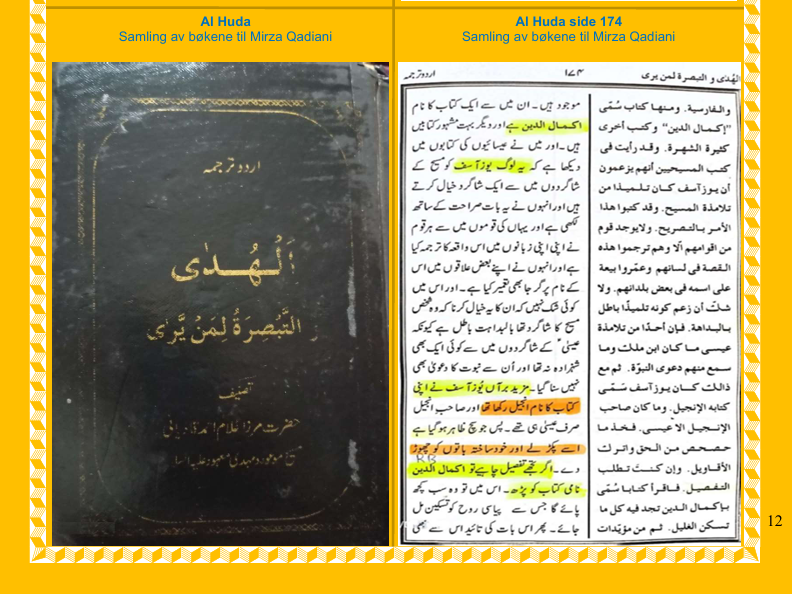 Al Huda
Samling av bøkene til Mirza Qadiani
Al Huda side 174
Samling av bøkene til Mirza Qadiani
اردو ترجمہ
اَلْہُدٰی
التَّبْصِرَةُ لِمَنْ یَّرٰی
تصنیف
حضرت مرزا غلام احمد قادیانی
مسیح موعود و مہدی معہود علیہ السلام
الهُدٰى و التبصرة لمن يرى
۱۷۴
اردو ترجمہ
والفارسية. ومنها كتاب سُمّى
"إكمال الدين" وكتب أخرى
كثيرة الشهرة. وقد رأيت فى
كتب المسيحيين أنهم يزعمون
أن يوز آسف كان تلميذا من
تلامذة المسيح. وقد كتبوا هذا
الأمر بالتصريح. ولا يوجد قوم
من اقوامهم ألا وهم ترجموا هذه
القصة فى لسانهم وعمّروا بيعة
على اسمه فى بعض بلدانهم. ولا
شك أن زعم كونه تلميذًا باطل
بالبداهة. فإن أحدًا من تلامذة
عيسى ما كان ابن ملك وما
سمع منهم دعوى النبوّة. ثم مع
ذالك كان يوز آسف سَمّى
كتابه الإنجيل. وما كان صاحب
الإنجيل الّا عيسى. فخذ ما
حصحص من الحق واترك
الأقاويل. وإن كنت تطلب
التفصيل. فاقرأ كتابا سُمّى
بإكمال الدين تجد فيه كل ما
تسكن الغليل. ثم من مؤيّدات
موجود ہیں۔ ان میں سے ایک کتاب کا نام
اکمال الدین ہے اور دیگر بہت مشہور کتابیں
ہیں۔ اور میں نے عیسائیوں کی کتابوں میں
دیکھا ہے کہ یہ لوگ یوز آسف کو مسیح کے
شاگردوں میں سے ایک شاگرد خیال کرتے
ہیں اور انہوں نے یہ بات صراحت کے ساتھ
لکھی ہے اور یہاں کی قوموں میں سے ہر قوم
نے اپنی اپنی زبانوں میں اس واقعہ کا ترجمہ کیا
ہے اور انہوں نے اپنے بعض علاقوں میں اس
کے نام پر گرجا بھی تعمیر کیا ہے۔ اور اس میں
کوئی شک نہیں کہ ان کا یہ خیال کرنا کہ وہ شخص
مسیح کا شاگرد تھا بالبداہت باطل ہے کیونکہ
عیسیٰؑ کے شاگردوں میں سے کوئی ایک بھی
شہزادہ نہ تھا اور اُن سے نبوت کا دعویٰ بھی
نہیں سنا گیا۔ مزید برآں یُوز آسف نے اپنی
کتاب کا نام انجیل رکھا تھا اور صاحب انجیل
صرف عیسیٰ ہی تھے۔ پس جو سچ ظاہر ہو گیا ہے
اسے پکڑ لے اور خود ساختہ باتوں کو چھوڑ
دے۔ اگر تجھے تفصیل چاہیے تو اکمال الدین
نامی کتاب کو پڑھ۔ اس میں تو وہ سب کچھ
پائے گا جس سے پیاسی روح کو تسکین مل
جائے۔ پھر اس بات کی تائید اس سے بھی
RB
12